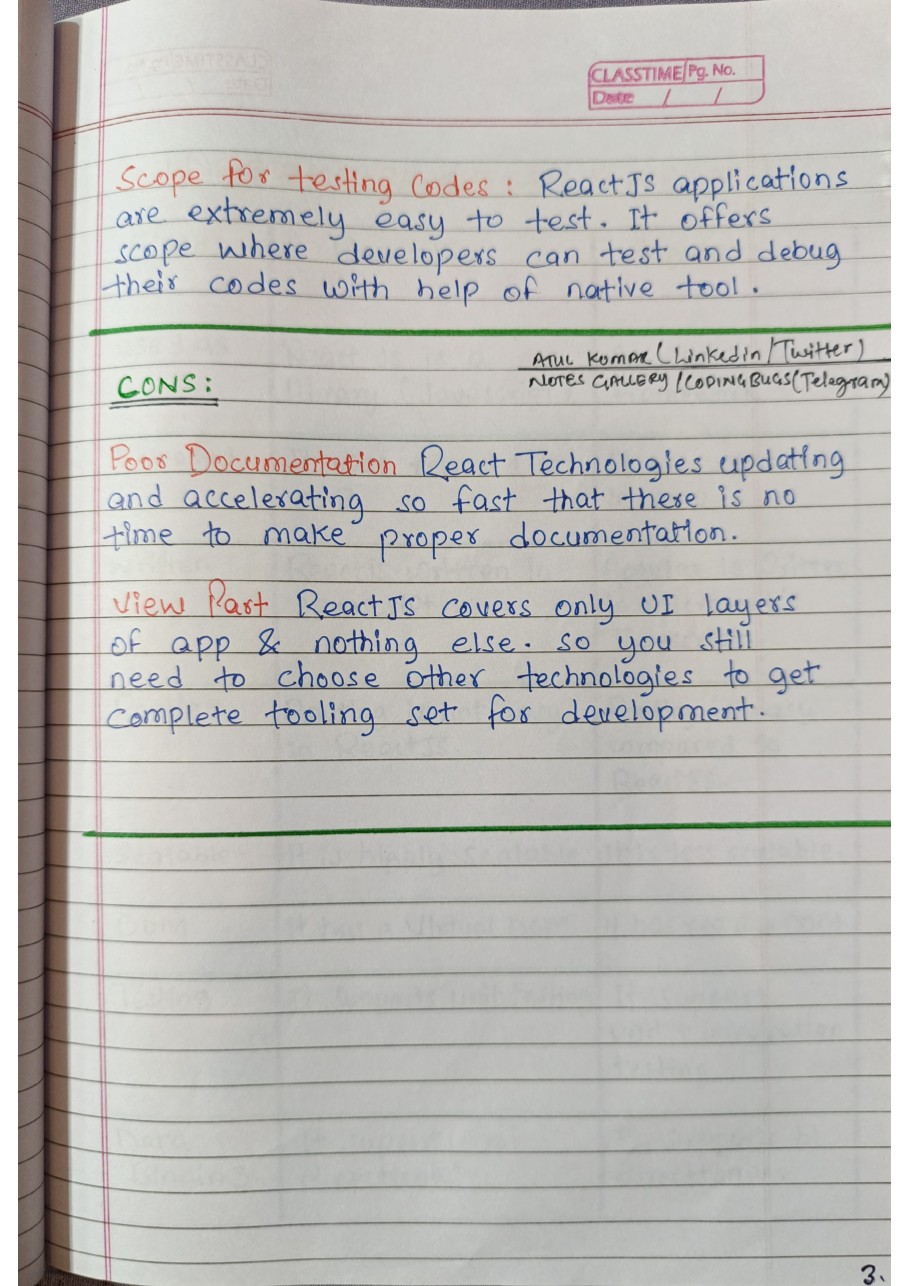 CLASSTIME Pg. No.
Date / /
Scope for testing Codes : ReactJS applications
are extremely easy to test. It offers
scope where developers can test and debug
their codes with help of native tool.
ATUL KUMAR (Linkedin/Twitter)
NOTES GALLERY/CODINGBUGS(Telegram)
CONS:
Poor Documentation React Technologies updating
and accelerating so fast that there is no
time to make proper documentation.
View Part ReactJS covers only UI layers
of app & nothing else. so you still
need to choose other technologies to get
complete tooling set for development.
3.